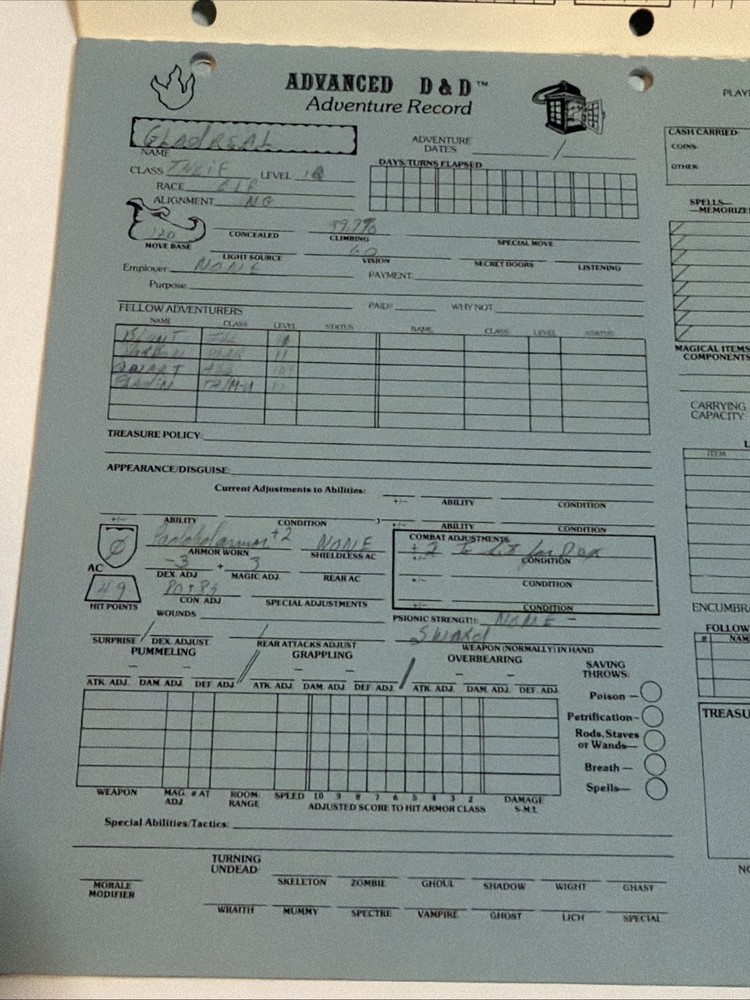 ADVANCED D&D™
Adventure Record
PLAY
GLADREAL
NAME
ADVENTURE DATES /
CASH CARRIED:
COINS:
OTHER:
CLASS THEIF LEVEL
DAYS/TURNS ELAPSED
RACE ELF
ALIGNMENT NG
SPELLS—
—MEMORIZE
120
MOVE BASE
CONCEALED
99.7%
CLIMBING
SPECIAL MOVE
LIGHT SOURCE
60
VISION
SECRET DOORS
LISTENING
Employer: NONE
PAYMENT:
Purpose:
FELLOW ADVENTURERS
PAID?
WHY NOT
NAME CLASS LEVEL STATUS NAME CLASS LEVEL STATUS
BLUNT
11
MAGICAL ITEMS
COMPONENTS
TREASURE POLICY:
CARRYING
CAPACITY
APPEARANCE/DISGUISE:
ITEM
Current Adjustments to Abilities:
+/— ABILITY CONDITION
+/— ABILITY CONDITION +/— ABILITY CONDITION
AC
+2 NONE
ARMOR WORN SHIELDLESS AC
COMBAT ADJUSTMENTS
+2 To hit for Dex
+/— CONDITION
-3 + 3
DEX. ADJ. MAGIC ADJ. REAR AC
+/— CONDITION
49
HIT POINTS
CON. ADJ. SPECIAL ADJUSTMENTS
+/— CONDITION
ENCUMBR
WOUNDS
PSIONIC STRENGTH: NONE -
Sword
WEAPON (NORMALLY) IN HAND
FOLLOW
# NAM
SURPRISE / DEX. ADJUST / REAR ATTACKS ADJUST
PUMMELING GRAPPLING OVERBEARING
SAVING
THROWS:
ATK. ADJ. DAM. ADJ. DEF. ADJ. ATK. ADJ. DAM. ADJ. DEF. ADJ. ATK. ADJ. DAM. ADJ. DEF. ADJ.
Poison—
Petrification—
TREASU
Rods, Staves
or Wands—
Breath—
Spells—
WEAPON MAG. ADJ. # AT ROOM. RANGE SPEED 10 9 8 7 6 5 4 3 2 DAMAGE S-M/L
ADJUSTED SCORE TO HIT ARMOR CLASS
Special Abilities/Tactics:
TURNING
UNDEAD:
MORALE
MODIFIER
SKELETON ZOMBIE GHOUL SHADOW WIGHT GHAST
NO
WRAITH MUMMY SPECTRE VAMPIRE GHOST LICH SPECIAL